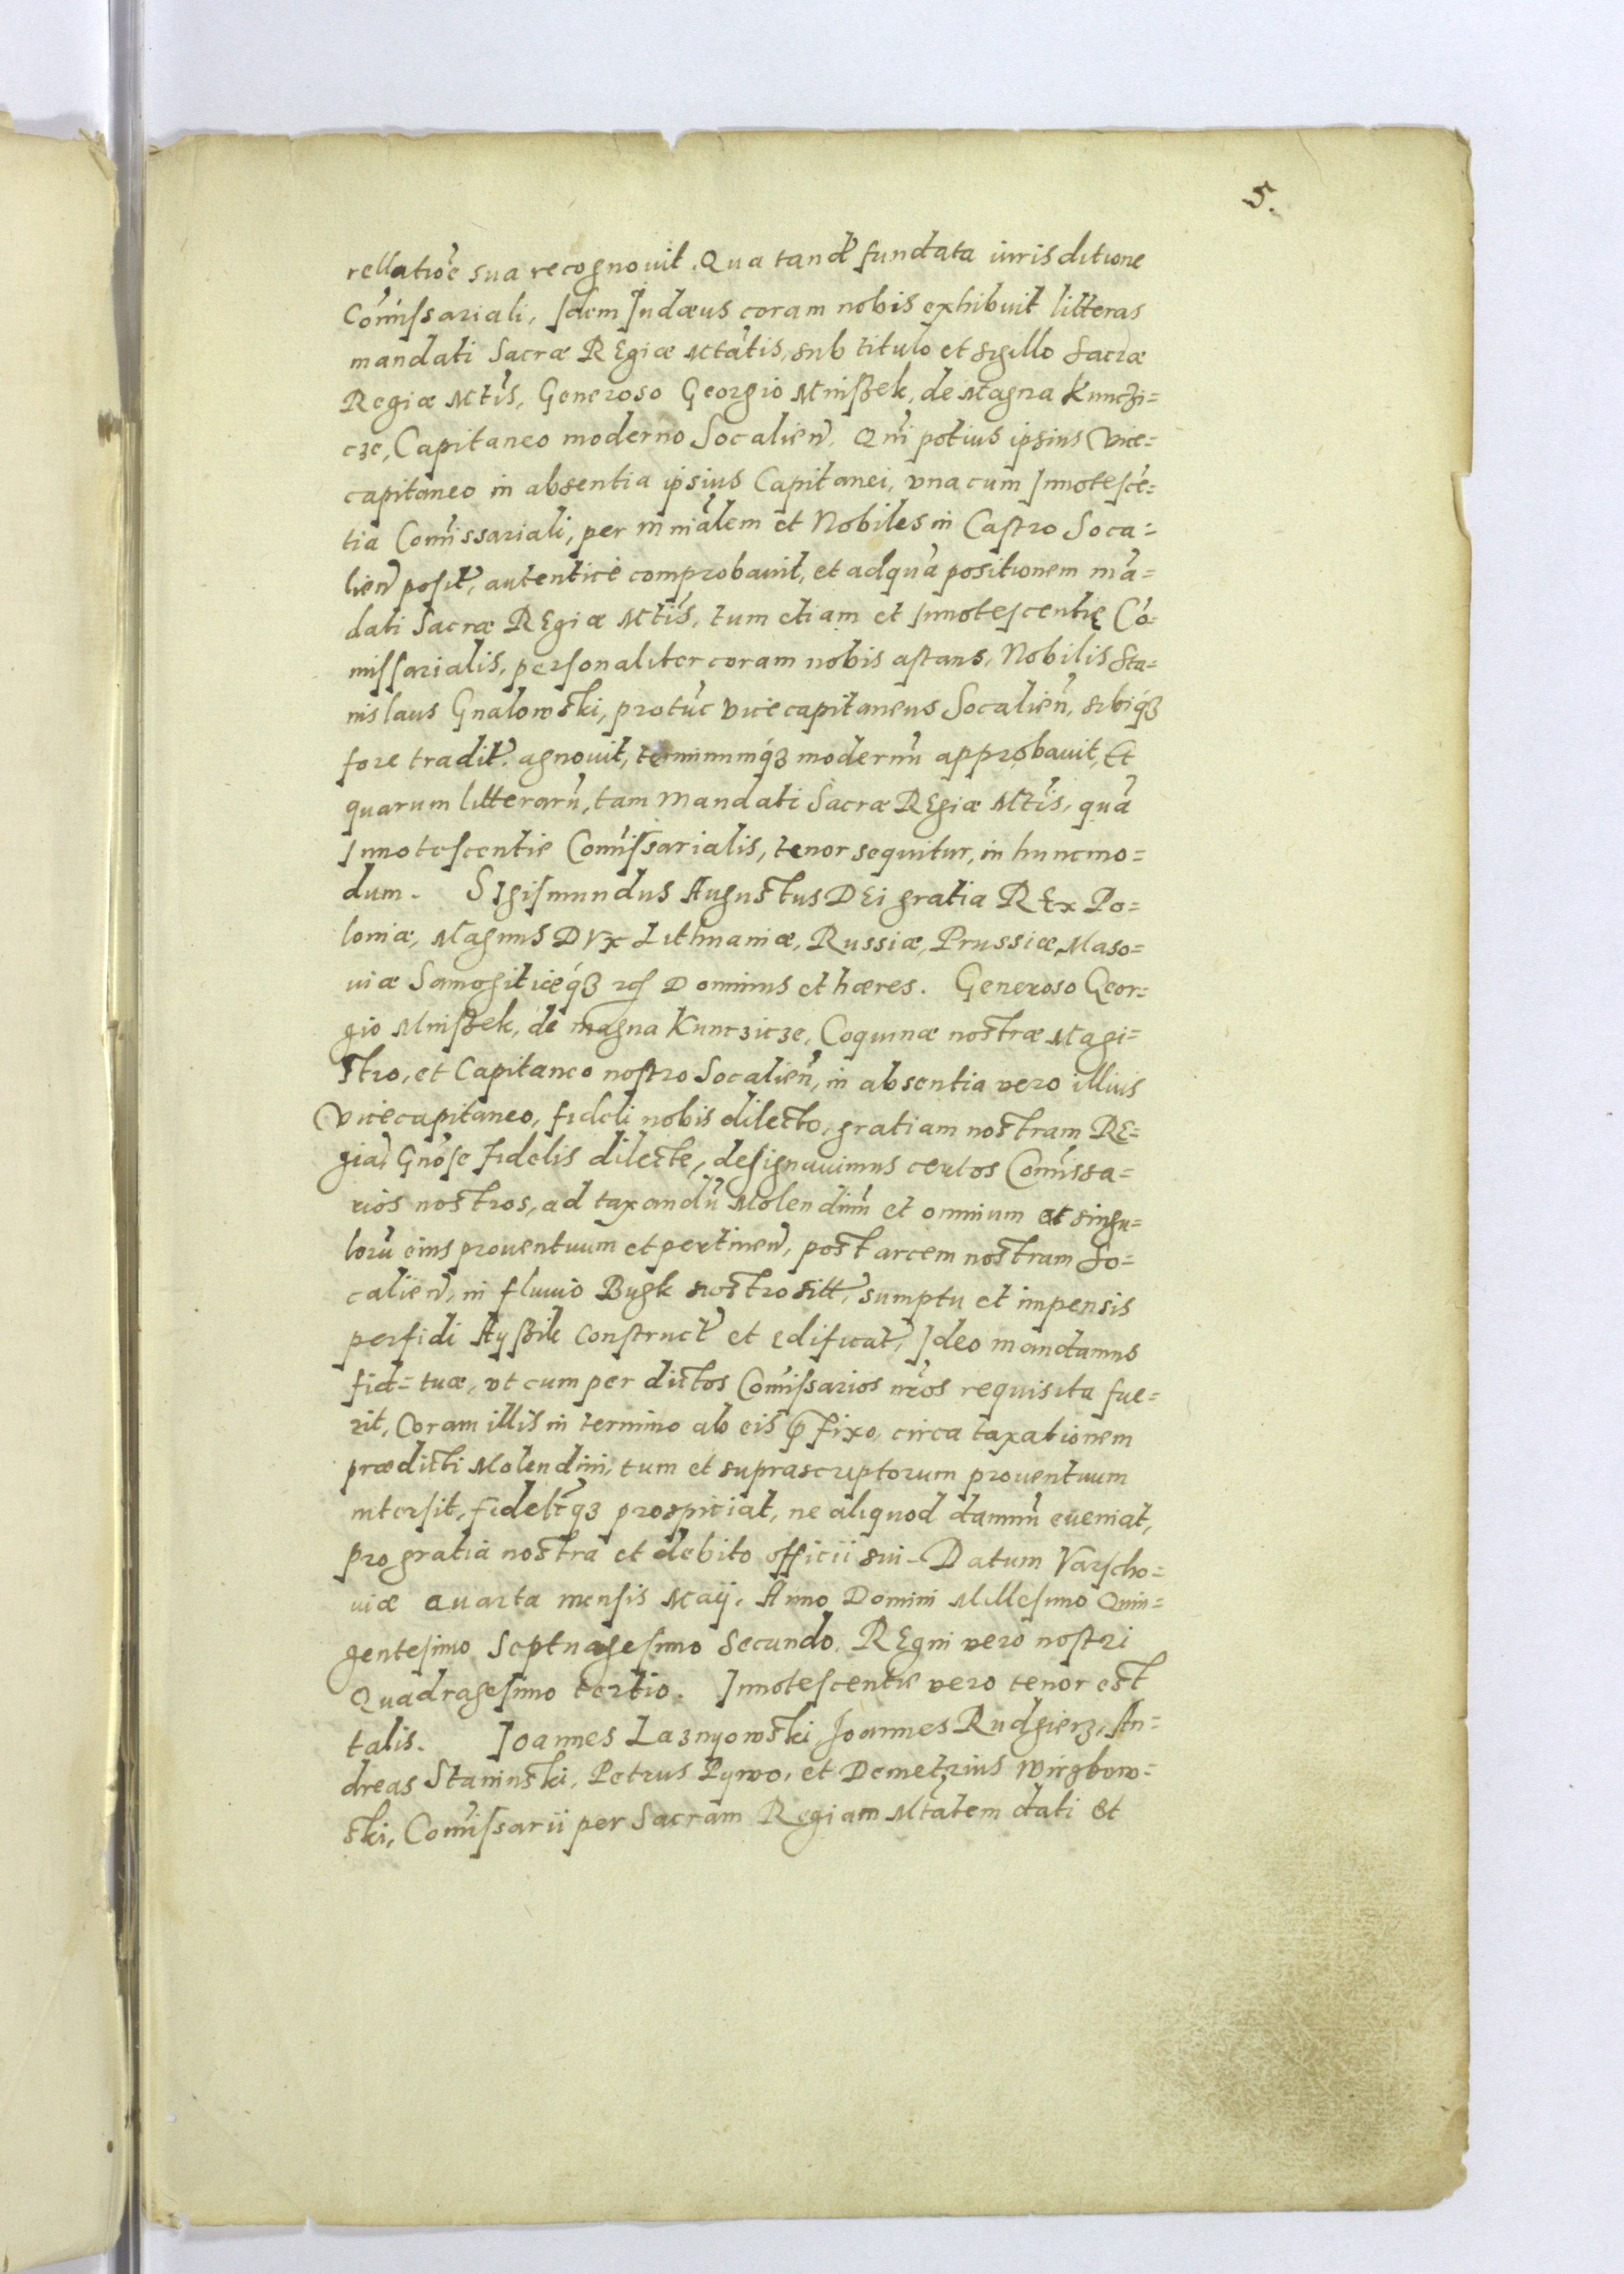 5.
rellatiōe sua recognouit. Qua tandē fundata iurisditione
Com̄issariali, Idem Iudæus coram nobis exhibuit litteras
mandati Sacræ REgiæ Mtātis, sub titulo et sigillo Sacræ
Regiæ Mtīs, Generoso Georgio Mnißek, de Magna Kunczi=
cze, Capitaneo moderno Socalien̄. Quī potius ipsius Vice=
capitaneo in absentia ipsius Capitanei, vna cum Innotescē=
tia Com̄issariali, per minālem et Nobiles in Castro Soca=
lien̄ posit̄, autenticè comprobauit, et ad quā positionem mā=
dati Sacræ REgiæ Mtīs, tum etiam et Innotescentię Cō=
missarialis, personaliter coram nobis astans, Nobilis Sta=
nislaus Gnalowski, protūc vicecapitaneus Socalien̄, sibiq́ꝫ
fore tradit̄ agnouit, terminumq́ꝫ modernū approbauit, Et
quarum litterarū, tam mandati Sacræ REgiæ Mtīs, quā
Innotescentie Com̄issarialis, tenor sequitur, in hunc mo=
dum. SIgismundus Augustus DEi gratia REx Po=
loniæ, Magnus DVx Lithuaniæ, Russiæ, Prussiæ, Maso=
uiæ Samogitiæq́ꝫ ꝛcͅ Dominus et hæres. Generoso Geor=
gio Mnißek, de magna Kunczicze, Coquinæ nostræ Magi=
stro, et Capitaneo nostro Socalien̄, in absentia vero illius
Vicecapitaneo, fideli nobis dilecto, gratiam nostram RE=
giā, Gnōse Fidelis dilecte, designauimus certos Com̄issa=
rios nostros, ad taxandū Molendinū et omnium et singu=
lorū eius prouentuum et pertinen̄, post arcem nostram So=
calien̄, in fluuio Bugk nostro sitt̄, sumptu et impensis
perfidi Ayßik construct̄ et edificat̄, Ideo mandamus
fid= tuæ, vt cum per dictos Com̄issarios nr̄os requisita fue=
rit, Coram illis in termino ab eis p̄fixo, circa taxationem
prædicti Molendini, tum et suprascriptorum prouentuum
intersit, fidelr̄q́ꝫ prospiciat, ne aliquod damnū eueniat,
pro gratia nostra et debito officii sui. Datum Varscho=
uiæ quarta mensis Maij. Anno Domini Millesimo Quin=
gentesimo Septuagesimo Secundo. REgni vero nostri
Quadragesimo tertio. Innotescentie vero tenor est
talis. Ioannes Laznyowski, Joannes Rudgierz, An=
dreas Staninski, Petrus Pywo, et Demetrius Wirzbow=
ski, Com̄issarii per Sacram Regiam Mtātem dati et